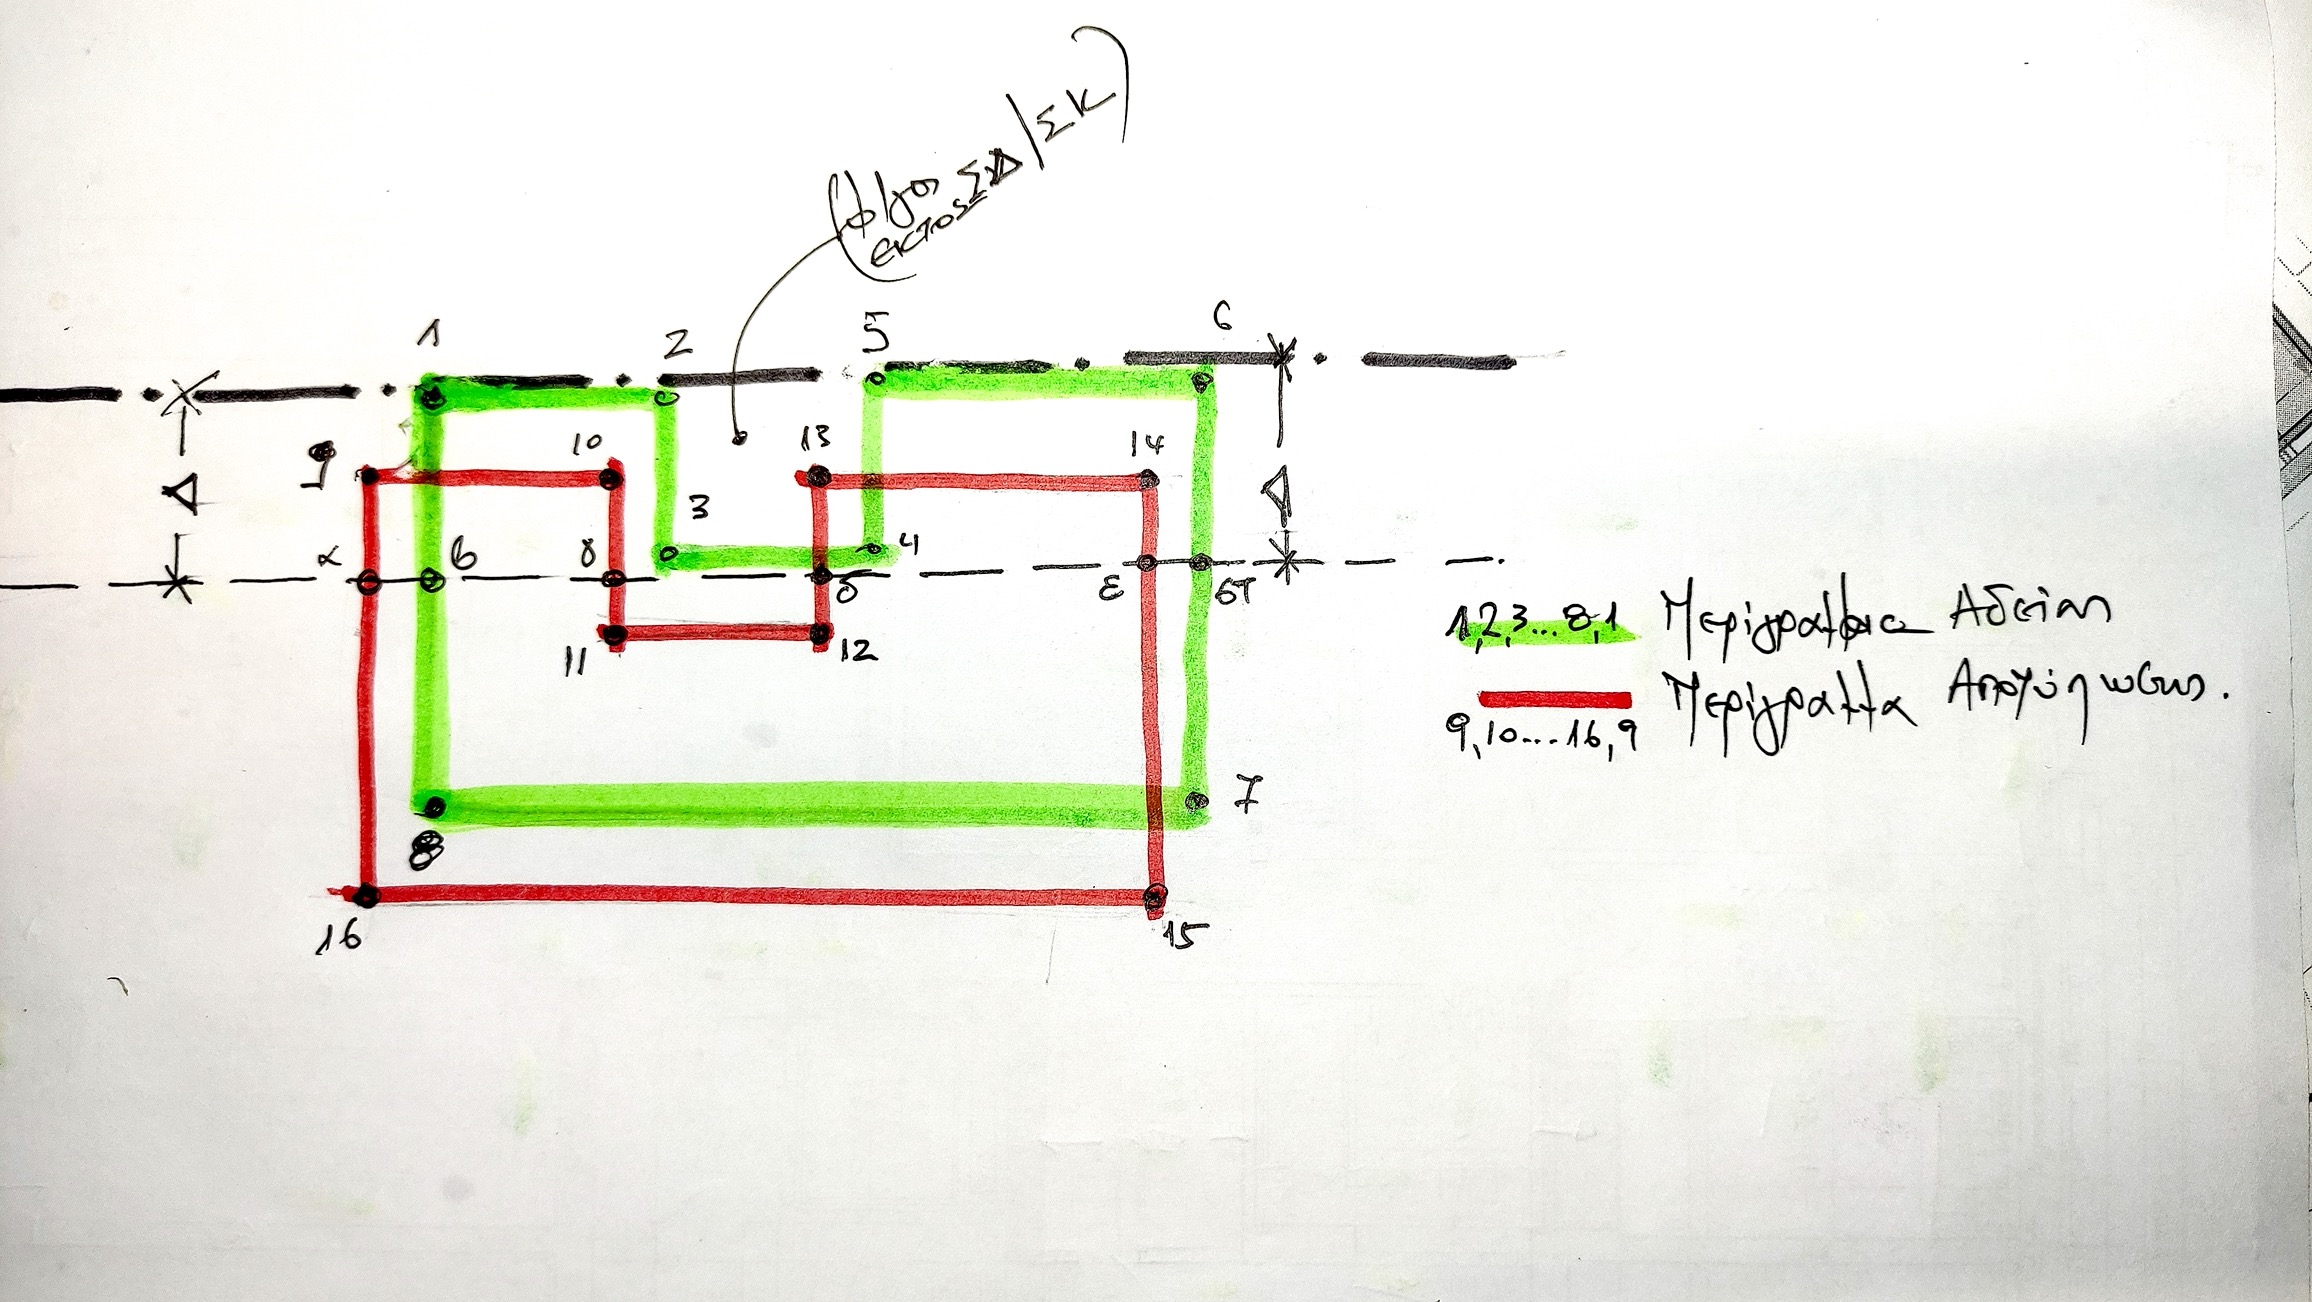 ΕΚΤΟΣ ΣΔ/ΣΚ)
1
2
5
6
9
10
13
14
Δ
Δ
3
4
α
β
γ
δ
ε
στ
11
12
7
8
16
15
1,2,3...8,1 Περίγραμμα Αδείας
Περίγραμμα Αποτύπωσης.
9,10...16,9